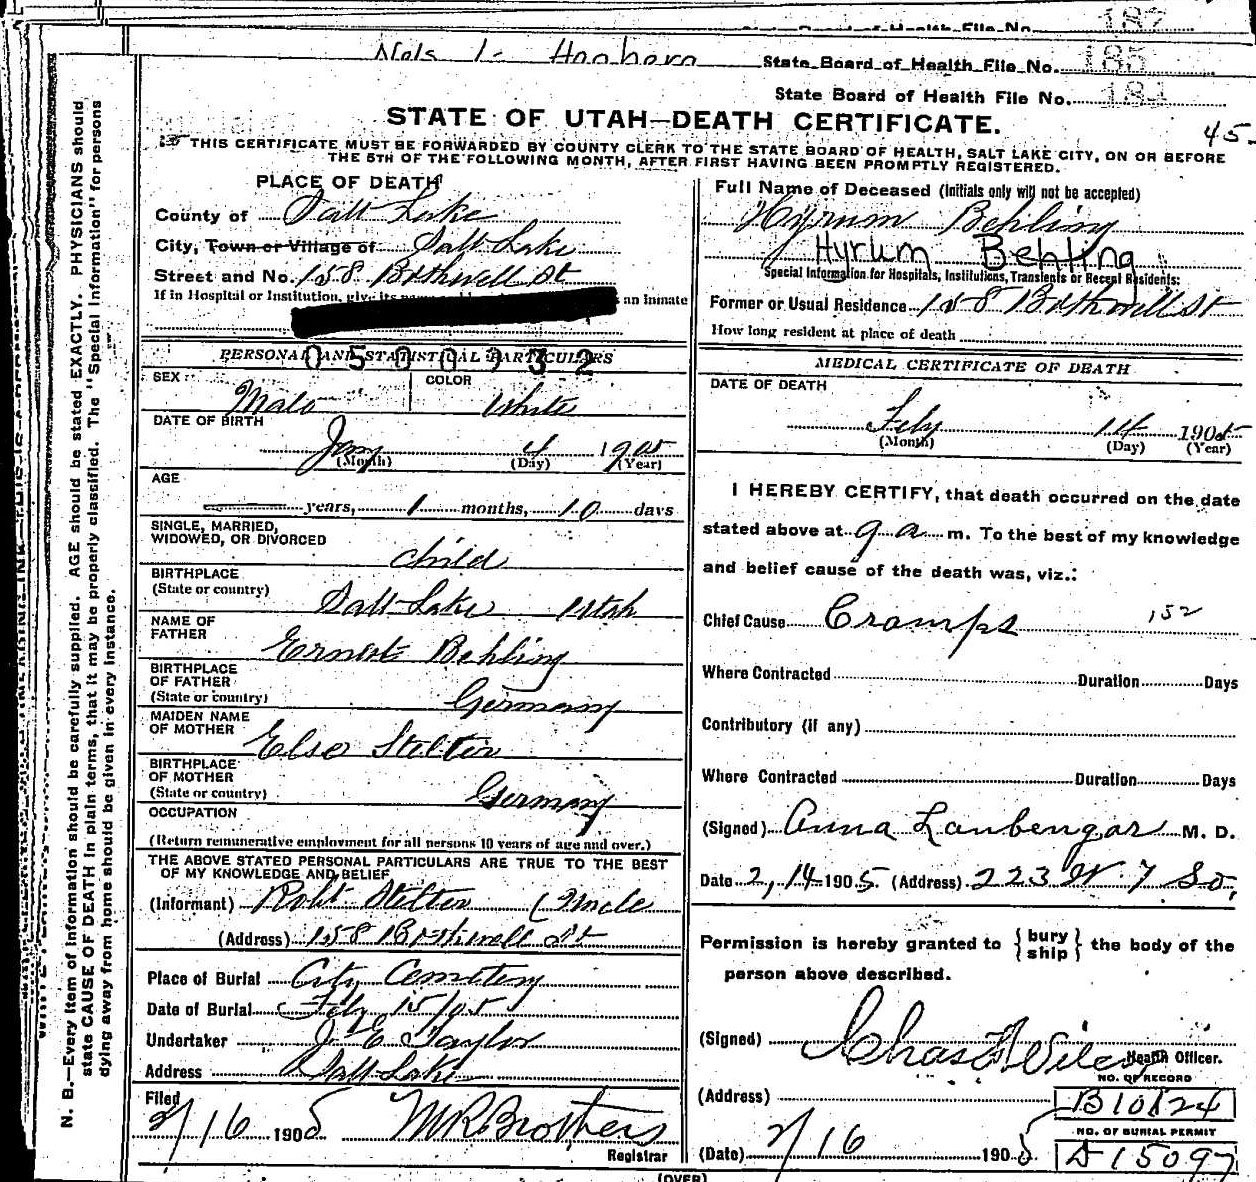 State Board of Health File No. 187
Nels State Board of Health File No. 185
State Board of Health File No. 184
STATE OF UTAH—DEATH CERTIFICATE.
45.
THIS CERTIFICATE MUST BE FORWARDED BY COUNTY CLERK TO THE STATE BOARD OF HEALTH, SALT LAKE CITY, ON OR BEFORE
THE 5TH OF THE FOLLOWING MONTH, AFTER FIRST HAVING BEEN PROMPTLY REGISTERED.
N. B.—Every item of information should be carefully supplied. AGE should be stated EXACTLY. PHYSICIANS should
state CAUSE OF DEATH in plain terms, that it may be properly classified. The "Special Information" for persons
dying away from home should be given in every instance.
PLACE OF DEATH
County of Salt Lake
City, Town or Village of Salt Lake
Street and No. 158 Bothwell St
If in Hospital or Institution, give its an inmate
PERSONAL AND STATISTICAL PARTICULARS
0500932
SEX Male COLOR White
DATE OF BIRTH
Jany 4 1905
(Month) (Day) (Year)
AGE
years, 1 months, 10 days
SINGLE, MARRIED,
WIDOWED, OR DIVORCED
child
BIRTHPLACE
(State or country)
Salt Lake Utah
NAME OF
FATHER
Ernest Behling
BIRTHPLACE
OF FATHER
(State or country)
Germany
MAIDEN NAME
OF MOTHER
Else Stelter
BIRTHPLACE
OF MOTHER
(State or country)
Germany
OCCUPATION
(Return remunerative employment for all persons 10 years of age and over.)
THE ABOVE STATED PERSONAL PARTICULARS ARE TRUE TO THE BEST
OF MY KNOWLEDGE AND BELIEF
(Informant) Robt Stelter (Uncle
(Address) 158 Bothwell St
Place of Burial City Cemetery
Date of Burial Feby 15/05
Undertaker J. E. Taylor
Address Salt Lake
Filed
2/16 1905 M R Brothers
Registrar
Full Name of Deceased (Initials only will not be accepted)
Hyrum Behling
Hyrum Behling
Special Information for Hospitals, Institutions, Transients or Recent Residents:
Former or Usual Residence 158 Bothwell St
How long resident at place of death
MEDICAL CERTIFICATE OF DEATH
DATE OF DEATH
Feby 14 1905
(Month) (Day) (Year)
I HEREBY CERTIFY, that death occurred on the date
stated above at 9 a m. To the best of my knowledge
and belief cause of the death was, viz.:
Chief Cause Cramps 152
Where Contracted Duration Days
Contributory (if any)
Where Contracted Duration Days
(Signed) Anna Laubengar M. D.
Date 2, 14 1905 (Address) 223 W. 7 So,
Permission is hereby granted to {bury
ship} the body of the
person above described.
(Signed) Chas F Wilcox
Health Officer.
(Address)
NO. OF RECORD
B10824
NO. OF BURIAL PERMIT
A15097
(Date) 2/16 1905
(OVER)